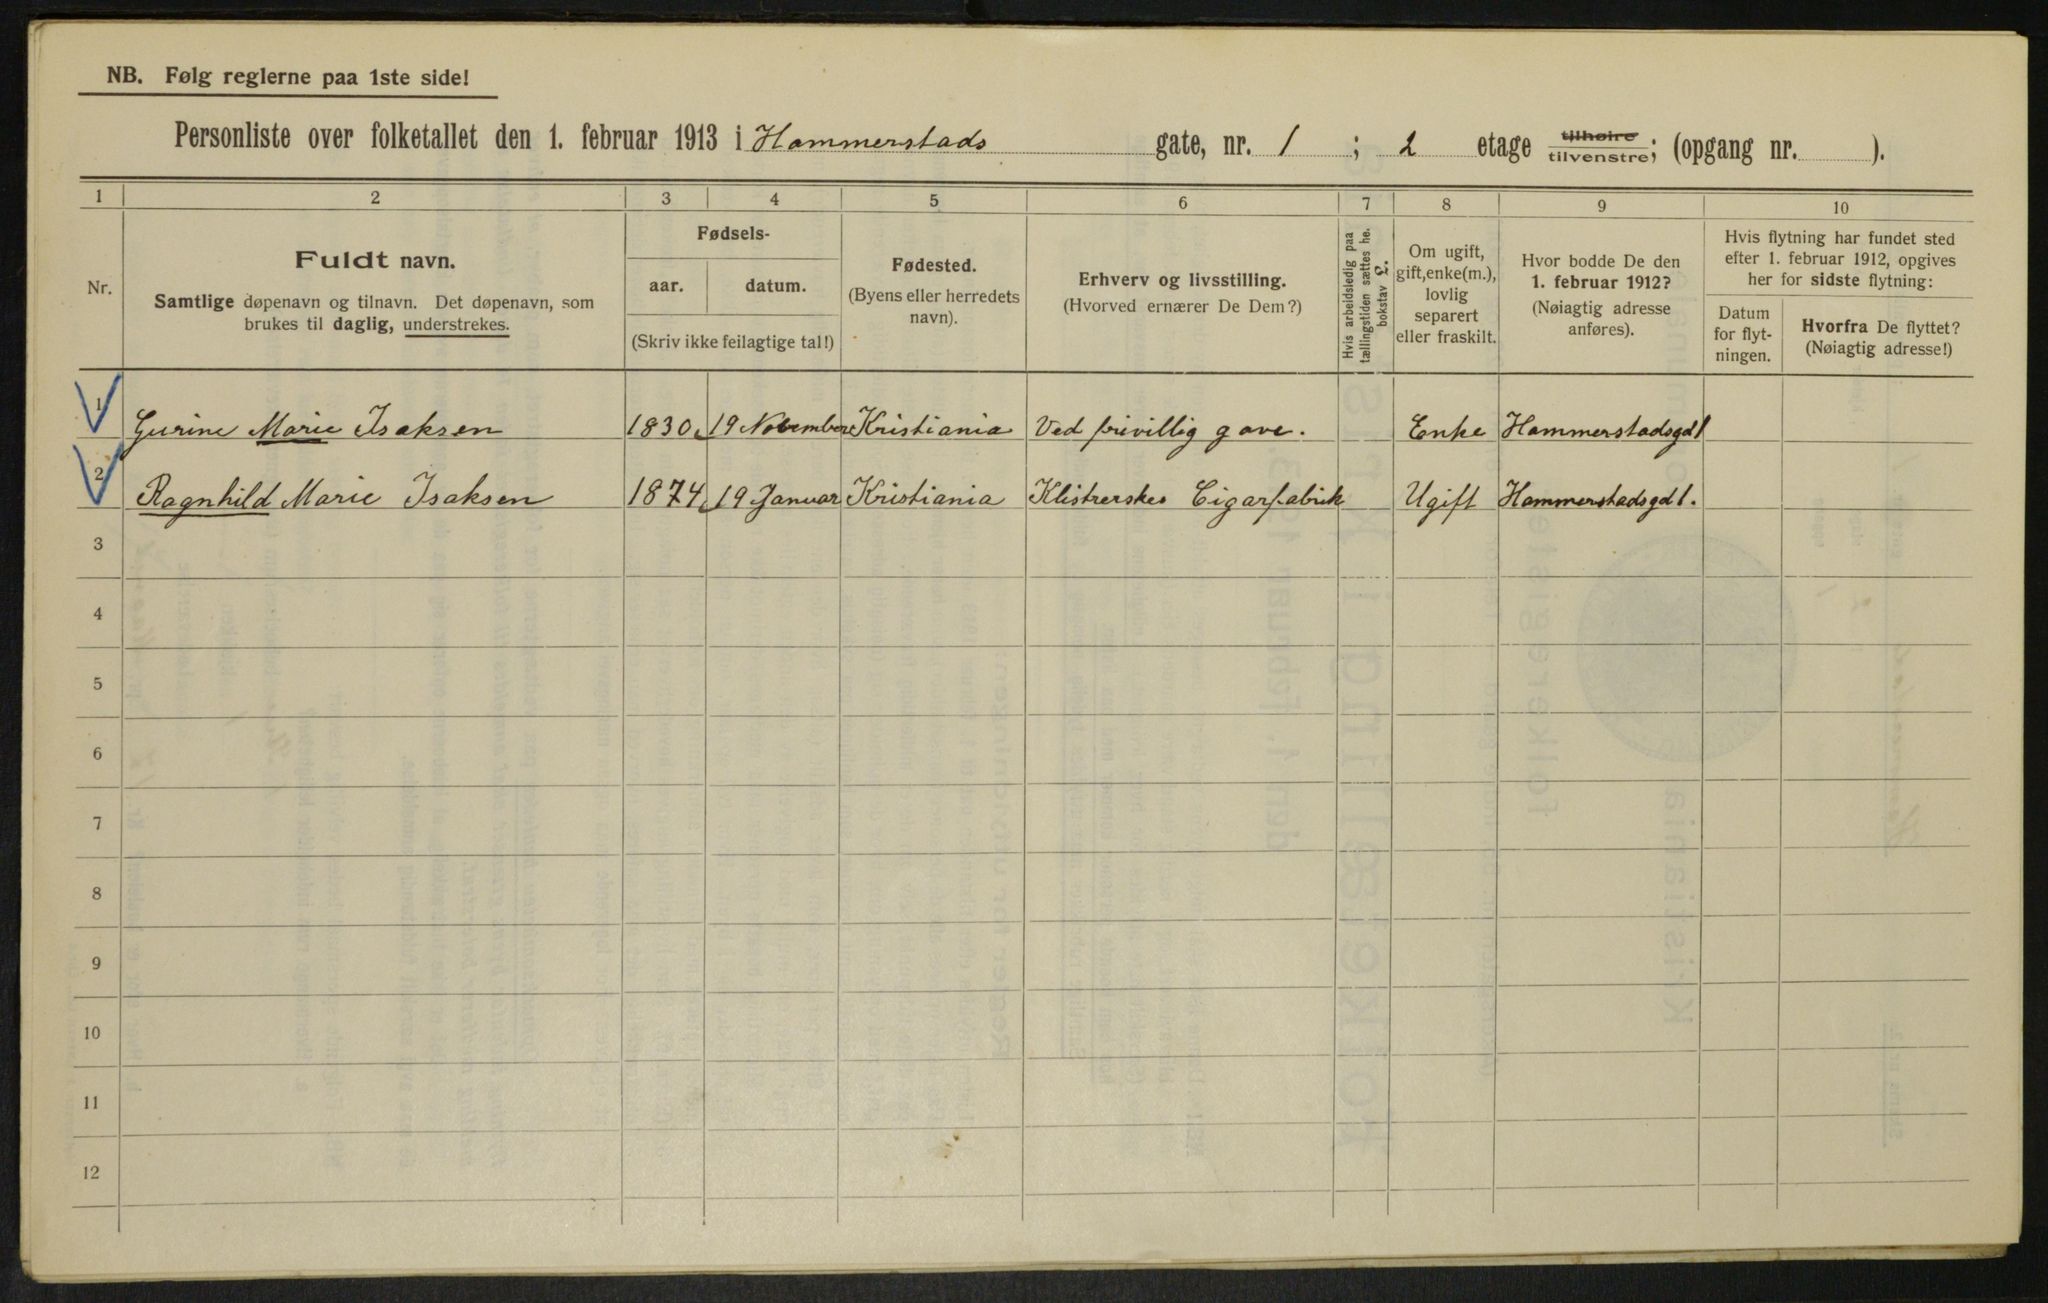 NB. Følg reglerne paa 1ste side!
Personliste over folketallet den 1. februar 1913 i Hammerstads gate, nr. 1 ; 2 etage tilhøire tilvenstre; (opgang nr. ).
1 2 3 4 5 6 7 8 9 10
Nr.
Fuldt navn.
Samtlige døpenavn og tilnavn. Det døpenavn, som
brukes til daglig, understrekes.
Fødsels-
aar. datum.
(Skriv ikke feilagtige tal!)
Fødested.
(Byens eller herredets
navn).
Erhverv og livsstilling.
(Hvorved ernærer De Dem?)
Hvis arbeidsledig paa
tællingstiden sættes he.
bokstav L.
Om ugift,
gift, enke(m.),
lovlig
separert
eller fraskilt.
Hvor bodde De den
1. februar 1912?
(Nøiagtig adresse
anføres).
Hvis flytning har fundet sted
efter 1. februar 1912, opgives
her for sidste flytning:
Datum
for flyt-
ningen.
Hvorfra De flyttet?
(Nøiagtig adresse!)
1 Gurine Marie Isaksen 1830 19 November Kristiania Ved frivillig gave. Enke Hammerstadsgd 1
2 Ragnhild Marie Isaksen 1874 19 Januar Kristiania Klistrerske Cigarfabrik Ugift Hammerstadsgd 1.
3
4
5
6
7
8
9
10
11
12